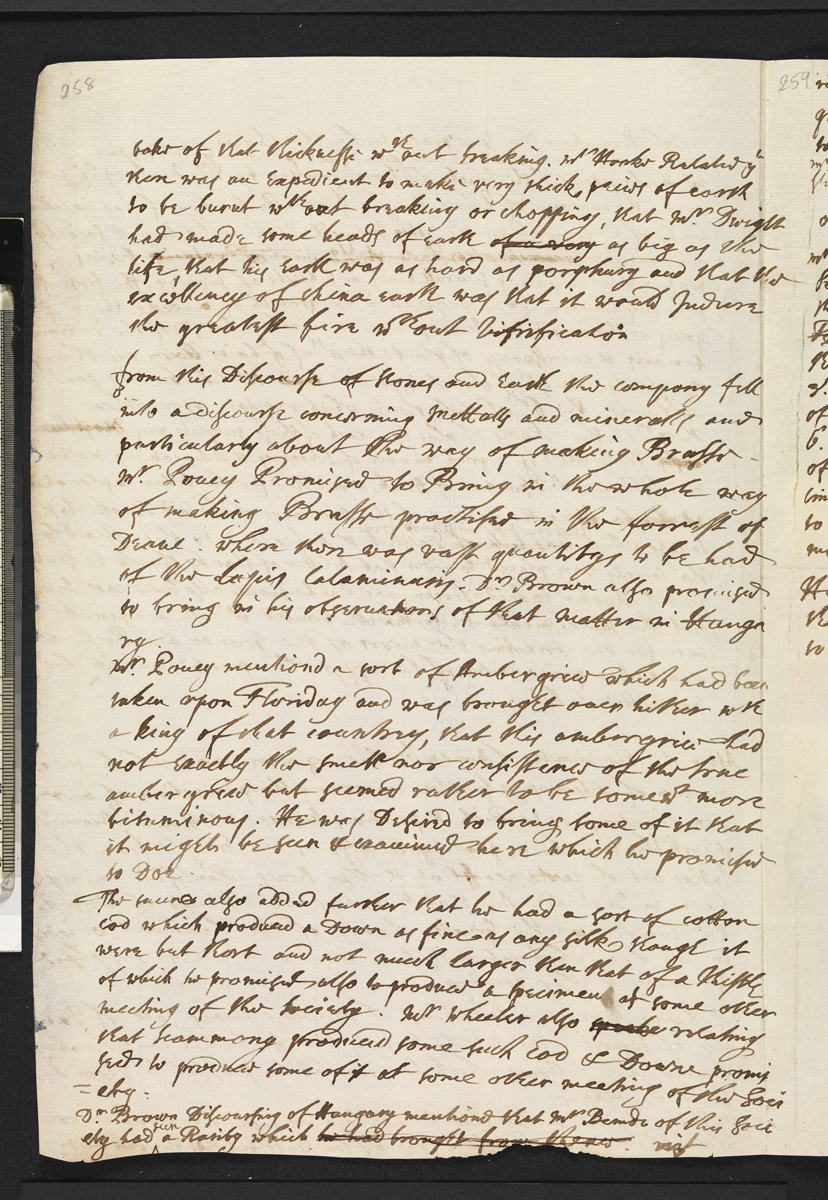 258
259
bake of that thicknesse wthout breaking. mr Hooke Related yt
there was an Expedient to make very thick peices of earth
to be burnt wthout breaking or chopping, that mr Dwight
had made some heads of earth of a very as big as the
life, that his Earth was as hard as porphury and that the
excellency of China earth was that it would Indure
the greatest fire wthout Vitrification
from this Discourse of stones and Earth the company fell
into a discourse concerning mettalls and mineralls and
particularly about the way of making Brasse
mr Povey Promised to Bring in the whole way
of making Brasse practised in the forrest of
Deane. where there was vast quantitys to be had
of the Lapis Calaminaris. Dr Brown also promised
to bring in his observations of that matter in Hunga
ry.
mr. Povey mentiond a sort of Ambergrice which had been
taken upon Floriday and was brought over hither wth
a king of that countrey, that this ambergrice had
not exactly the smell nor consistence of the true
amber grece but seemed rather to be somewt more
bituminous. He was Desired to bring some of it that
it might be seen & examined here which he promised
to Doe.
The same also added further that he had a sort of cotton
cod which produced a Down as fine as any silk though it
were but short and not much larger then that of a thistle
of which he promised also to produce a specimen at some other
meeting of the society. mr wheeler also relating
that Scammony produced some such Cod & Downe promi
sed to produce some of it at some other meeting of the Soci
=ety.
Dr. Brown Discoursing of Hungary mentiond that mr Bemde of this Soci
ety had seen a Rarity which he had brought from thence. vizt